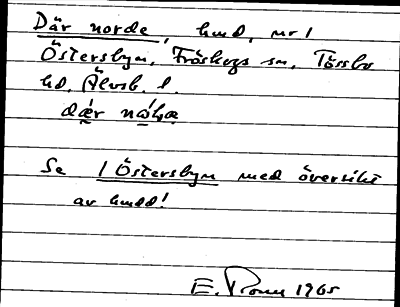 Där norde, hmd, nr 1
Östersbyn, Fröskogs sn, Tössbo
hd, Älvsb. l.
dæ̀r nǫ́ḷæ
Se 1 Östersbyn med översikt
av hmdd!
E. 1965